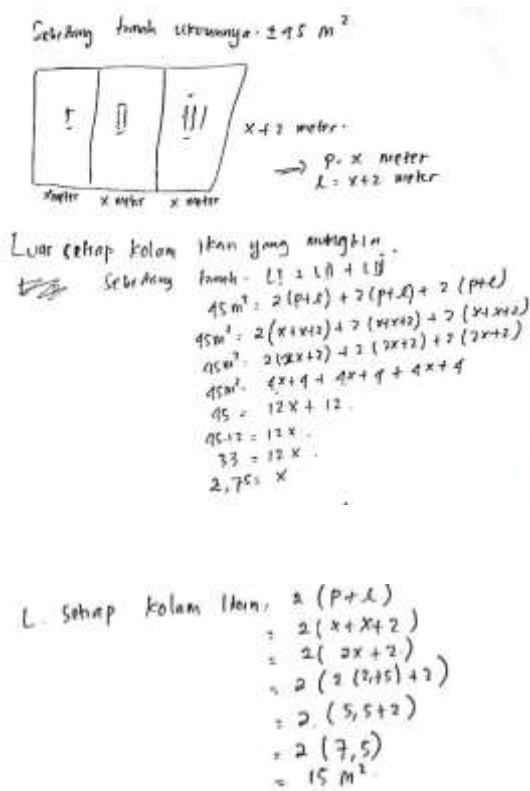 Sebidang tanah ukurannya ± 45 m²
I
II
III
x+2 meter.
→ p = x meter
l = x+2 meter
x meter
x meter
x meter
Luas setiap kolam ikan yang mungkin.
Sebidang tanah = LI + LII + LIII
45 m² = 2(p+l) + 2(p+l) + 2(p+l)
45 m² = 2(x+x+2) + 2(x+x+2) + 2(x+x+2)
45 m² = 2(2x+2) + 2(2x+2) + 2(2x+2)
45 m² = 4x+4 + 4x+4 + 4x+4
45 = 12x + 12.
45-12 = 12x.
33 = 12x.
2,75 = x
L. setiap kolam ikan = 2(p+l)
= 2(x+x+2)
= 2(2x+2)
= 2(2(2,75)+2)
= 2.(5,5+2)
= 2(7,5)
= 15 m².